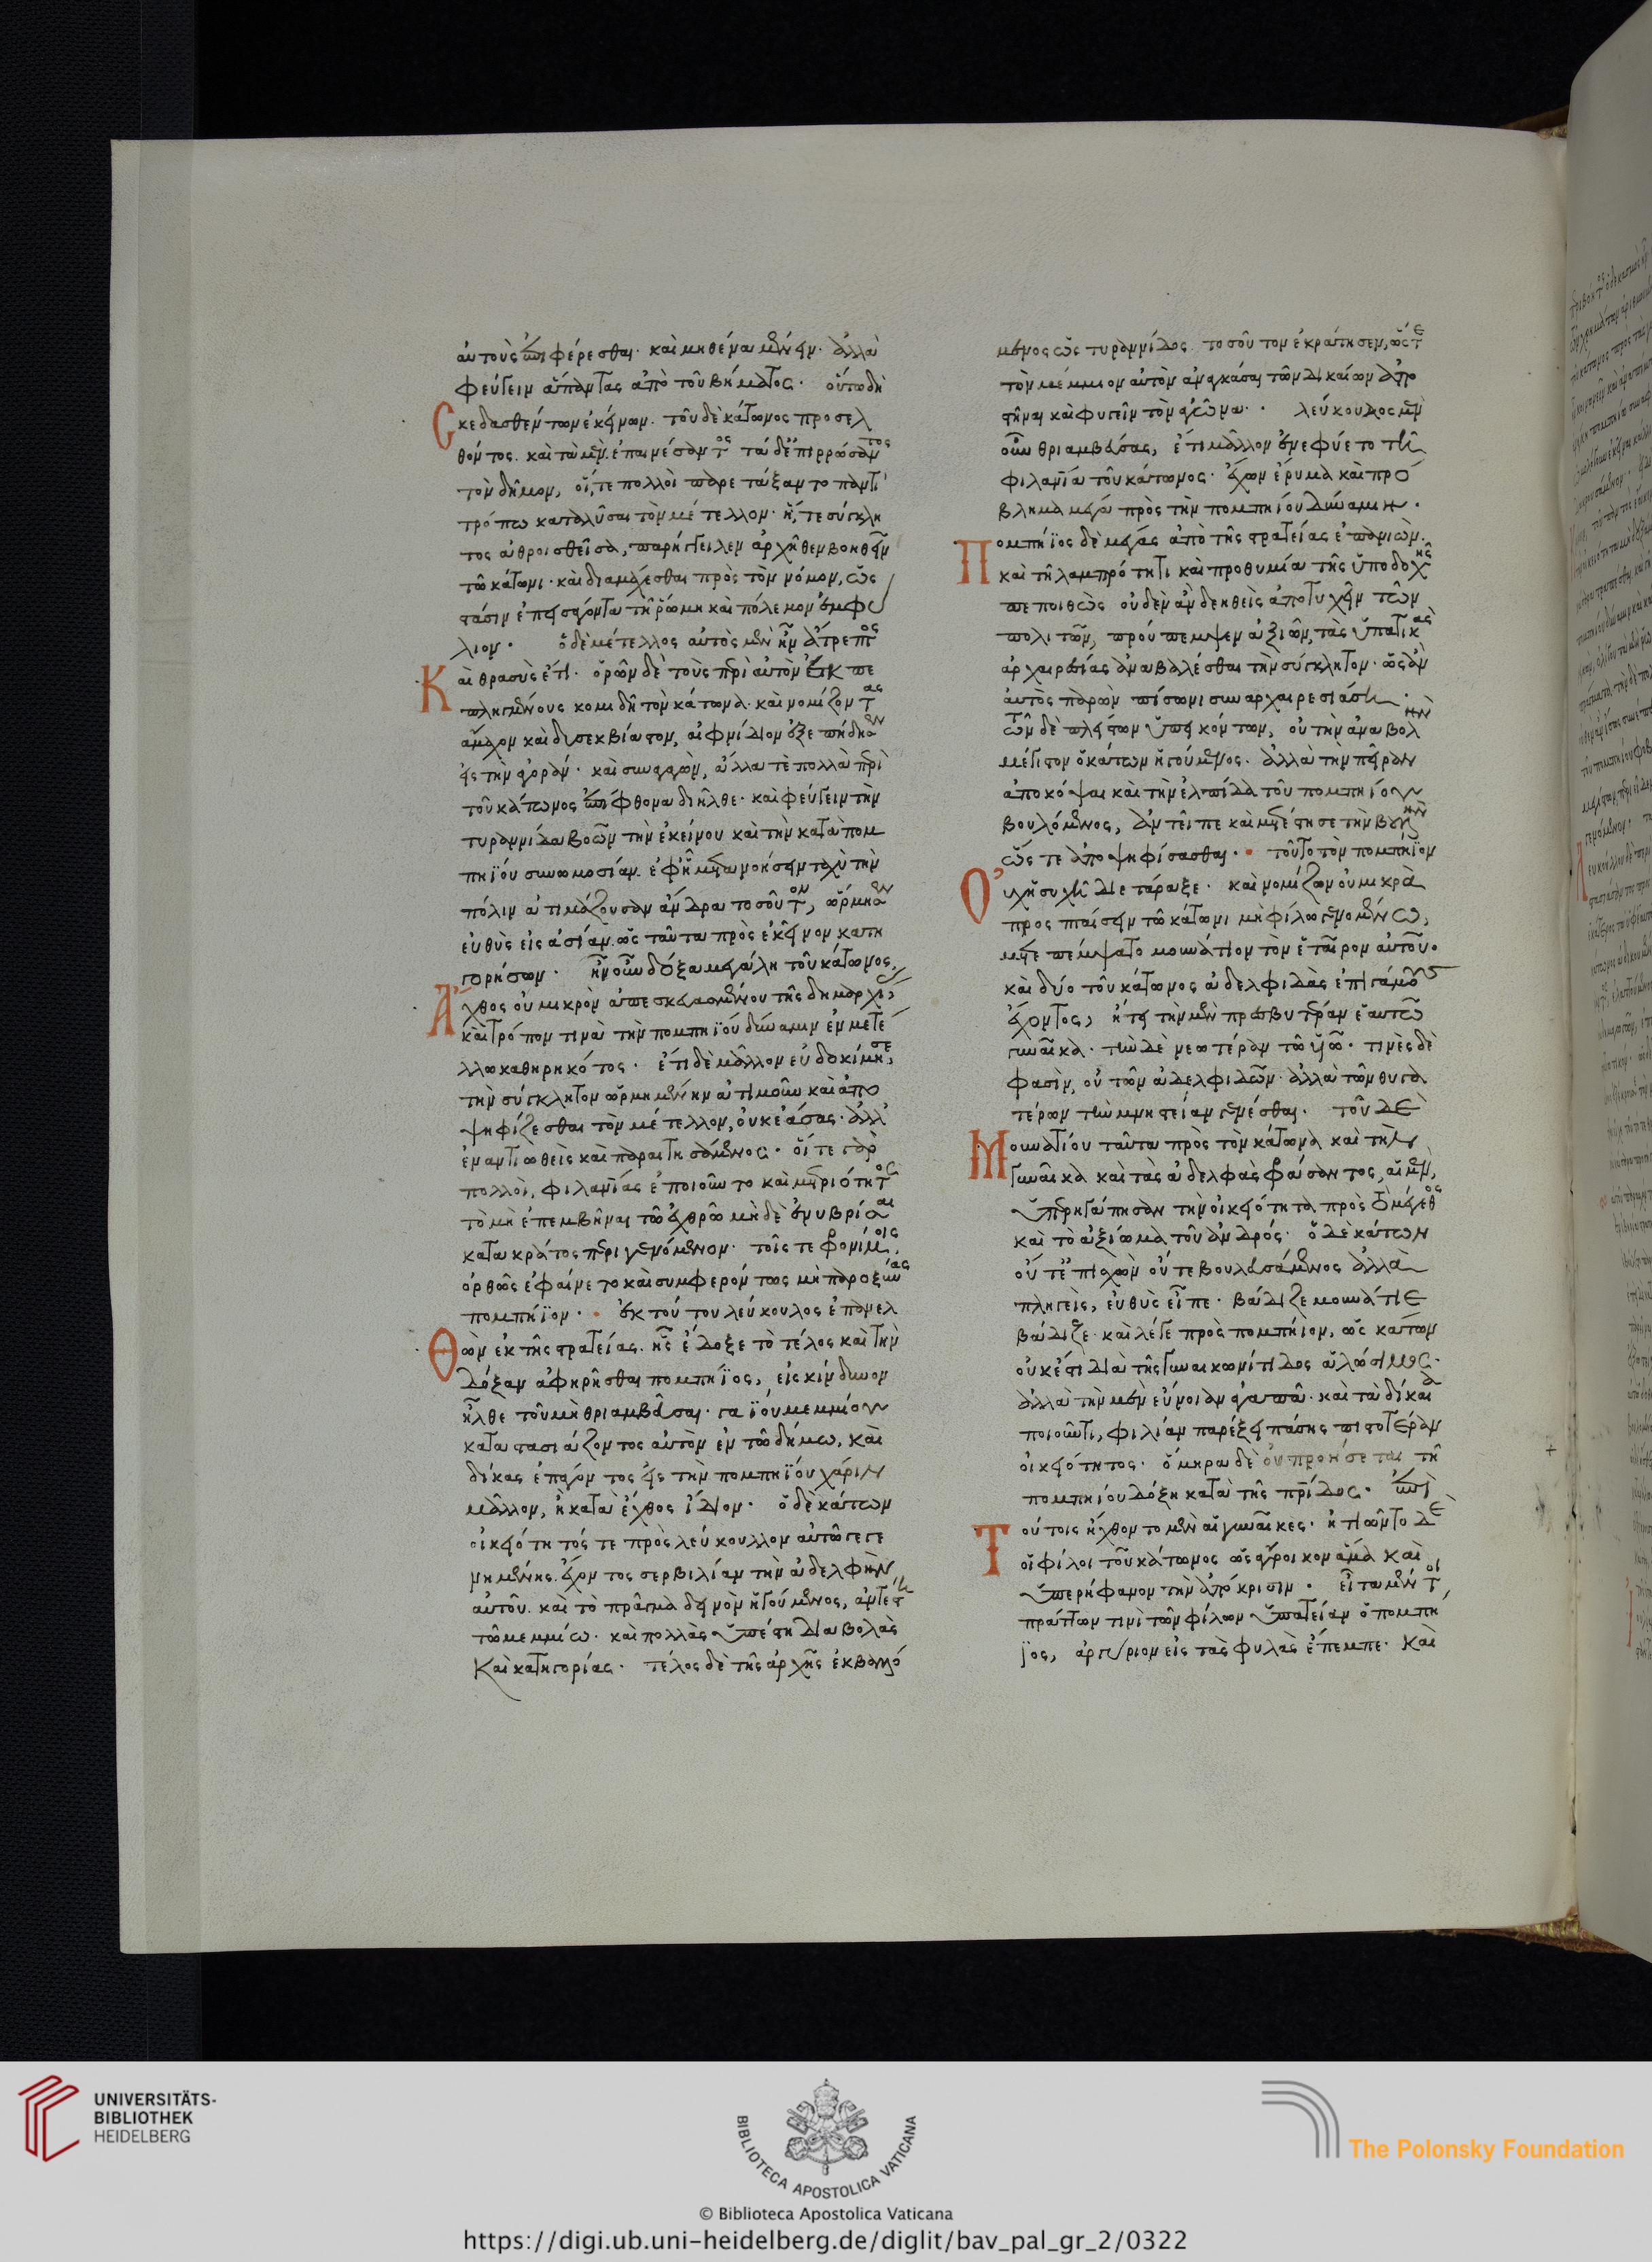 αὐτοὺς ἐπιφέρεσθαι· καὶ μηθένα μένειν· ἀλλὰ
φεύγειν ἅπαντας ἀπὸ τοῦ βήματος· οὕτω δὴ
Σκεδασθέντων ἐκείνων· τοῦ δὲ κάτωνος προσελ
θόντος· καὶ τὰ μὲν ἐπαινέσαντος τὰ δ' ἐπιρρώσαντος
τὸν δῆμον, οἵ, τε πολλοὶ παρετάξαντο παντὶ
τρόπω καταλῦσαι τὸν μέτελλον· ἥ, τε σύγκλη
τος ἀθροισθεῖσα, παρήγγειλεν ἀρχῆθεν βοηθεῖν
τῶ κάτωνι· καὶ διαμάχεσθαι πρὸς τὸν νόμον, ὡς
στάσιν ἐπεισάγοντα τῆ ῥώμη καὶ πόλεμον ἐμφύ
λιον· ὁ δὲ μέτελλος αὐτὸς μὲν ἦν ἄτρεπτος
Καὶ θρασὺς ἔτι· ὁρῶν δὲ τοὺς περὶ αὐτὸν ἐκπε
πληγμένους κομιδῆ τὸν κάτωνα· καὶ νομίζοντας
ἄμαχον καὶ δυσεκβίαστον, αἰφνίδιον ἐξεπήδησεν
εἰς τὴν ἀγοράν· καὶ συναγαγὼν, ἄλλα τὲ πολλὰ περὶ
τοῦ κάτωνος ἐπίφθονα διῆλθε· καὶ φεύγειν τὴν
τυραννίδα βοῶν τὴν ἐκείνου καὶ τὴν κατὰ πομ
πηΐου συνωμοσίαν· ἐφ' ἧ μετανοήσειν ταχὺ τὴν
πόλιν ἀτιμάζουσαν ἄνδρα τοσοῦτον, ὥρμησεν
εὐθὺς εἰς ἀσίαν· ὡς ταῦτα πρὸς ἐκεῖνον κατη
γορήσων· ἦν οὖν δόξα μεγάλη τοῦ κάτωνος,
Ἄχθος οὐ μικρὸν ἀπεσκευασμένου τῆς δημαρχίας,
καὶ τρόπον τινὰ τὴν πομπηΐου δύναμιν ἐν μετέ
λλω καθηρηκότος· ἔτι δὲ μᾶλλον εὐδοκίμησε,
τὴν σύγκλητον ὡρμημένην ἀτιμοῦν καὶ ἀπο
ψηφίζεσθαι τὸν μέτελλον, οὐκ ἐάσας· ἀλλ'
ἐναντιωθεὶς καὶ παραιτησάμενος· οἵ τε γὰρ
πολλοὶ, φιλανθρωπίας ἐποιοῦντο καὶ μετριότητος
τὸ μὴ ἐπεμβῆναι τῶ ἐχθρῶ μὴ δὲ ἐνυβρίσαι
κατὰ κράτος περιγενόμενον· τοῖς τε φρονίμοις,
ὀρθῶς ἐφαίνετο καὶ συμφερόντως μὴ παροξῦναι
πομπήϊον· ἐκ τούτου λεύκουλος ἐπανελ
Θὼν ἐκ τῆς στρατείας· ἧς ἔδοξε τὸ τέλος καὶ τὴν
δόξαν ἀφηρῆσθαι πομπήϊος, εἰς κίνδυνον
ἦλθε τοῦ μὴ θριαμβεῦσαι· γαΐου μεμμίου
καταστασιάζοντος αὐτὸν ἐν τῶ δήμω, καὶ
δίκας ἐπάγοντος εἰς τὴν πομπηΐου χάριν
μᾶλλον, ἢ κατὰ ἔχθος ἴδιον· ὁ δὲ κάτων
οἰκειότητός τε πρὸς λεύκουλλον αὐτῶ γεγε
νημένης· ἔχοντος σερβιλίαν τὴν ἀδελφὴν
αὐτοῦ· καὶ τὸ πρᾶγμα δεινὸν ἡγούμενος, ἀντέστη
τῶ μεμμίω· καὶ πολλὰς ὑπέστη διαβολὰς
καὶ κατηγορίας· τέλος δὲ τῆς ἀρχῆς ἐκβαλλό
μενος ὡς τυραννίδος τοσοῦτον ἐκράτησεν, ὥστε
τὸν μέμμιον αὐτὸν ἀναγκάσαι τῶν δικαίων ἀπο
στῆναι καὶ φυγεῖν τὸν ἀγῶνα· λεύκουλος μὲν
οὖν θριαμβεύσας, ἔτι μᾶλλον ἐνεφύετο τῆ
φιλανθρωπία τοῦ κάτωνος· ἔχων ἔρυμα καὶ πρό
βλημα μέγα πρὸς τὴν πομπηίου δύναμιν·
Πομπήϊος δὲ μέγας ἀπὸ τῆς στρατείας ἐπανιὼν·
καὶ τῆ λαμπρότητι καὶ προθυμία τῆς ὑποδοχῆς
πεποιθὼς οὐδὲν ἂν δεηθεὶς ἀποτυχεῖν τῶν
πολιτῶν, προύπεμψεν ἀξιῶν, τὰς ὑπατικὰς
ἀρχαιρεσίας ἀναβαλέσθαι τὴν σύγκλητον· ὡς ἂν
αὐτὸς παρὼν πίσωνι συναρχαιρεσιάση·
τῶν δὲ πλείστων ὑπεικόντων, οὐ τὴν ἀναβολὴν
μέγιστον ὁ κάτων ἡγούμενος· ἀλλὰ τὴν πεῖραν
ἀποκόψαι καὶ τὴν ἐλπίδα τοῦ πομπηίου
βουλόμενος, ἀντεῖπε καὶ μετέστησε τὴν βουλὴν
ὥς τε ἀποψηφίσασθαι· τοῦτο τὸν πομπήϊον
Οὐχ ἡσυχῆ διετάραξε· καὶ νομίζων οὐ μικρὰ
προσπταίσειν τῶ κάτωνι μὴ φίλω γενομένω,
μετεπέμψατο μουνάτιον τὸν ἑταῖρον αὐτοῦ·
καὶ δύο τοῦ κάτωνος ἀδελφιδὰς ἐπιγάμους
ἔχοντος, ἤτει τὴν μὲν πρεσβυτέραν ἑαυτῶ
γυναῖκα· τὴν δὲ νεωτέραν τῶ υἱῶ· τινὲς δὲ
φασὶν, οὐ τῶν ἀδελφιδῶν· ἀλλὰ τῶν θυγα
τέρων τὴν μνηστείαν γενέσθαι· τοῦ δὲ
Μουνατίου ταῦτα πρὸς τὸν κάτωνα καὶ τὴν
γυναῖκα καὶ τὰς ἀδελφὰς φράσαντος, αἱ μὲν,
ὑπερηγάπησαν τὴν οἰκειότητα πρὸς τὸ μέγεθος
καὶ τὸ ἀξίωμα τοῦ ἀνδρός· ὁ δὲ κάτων
οὔτ' ἐπισχὼν οὔτε βουλευσάμενος ἀλλὰ
πληγεὶς, εὐθὺς εἶπε· βάδιζε μουνάτιε
βάδιζε· καὶ λέγε πρὸς πομπήιον, ὡς κάτων
οὐκ ἔστι διὰ τῆς γυναικωνίτιδος ἁλώσιμος·
ἀλλὰ τὴν μὲν εὔνοιαν ἀγαπᾶ· καὶ τὰ δίκαια
ποιοῦντι, φιλίαν παρέξει πάσης πιστοτέραν
οἰκειότητος· ὅμηρα δὲ οὐ προήσεται τῆ
πομπηίου δόξη κατὰ τῆς πατρίδος· ἐπὶ
Τούτοις ἤχθοντο μὲν αἱ γυναῖκες· ἠτιῶντο δὲ
οἱ φίλοι τοῦ κάτωνος ὡς ἄγροικον ἅμα καὶ
ὑπερήφανον τὴν ἀπόκρισιν· εἶτα μέντοι
πράττων τινὶ τῶν φίλων ὑπατείαν ὁ πομπή
ϊος, ἀργύριον εἰς τὰς φυλὰς ἔπεμπε· καὶ
UNIVERSITÄTS-
BIBLIOTHEK
HEIDELBERG
BIBLIOTECA APOSTOLICA VATICANA
The Polonsky Foundation
© Biblioteca Apostolica Vaticana
https://digi.ub.uni-heidelberg.de/diglit/bav_pal_gr_2/0322